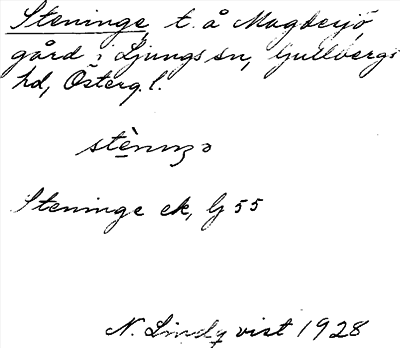 Steninge, t. å Magdesjö
gård i Ljungs sn, Gullbergs
hd, Österg. l.
Steninge ek, G 55
N. Lindqvist 1928